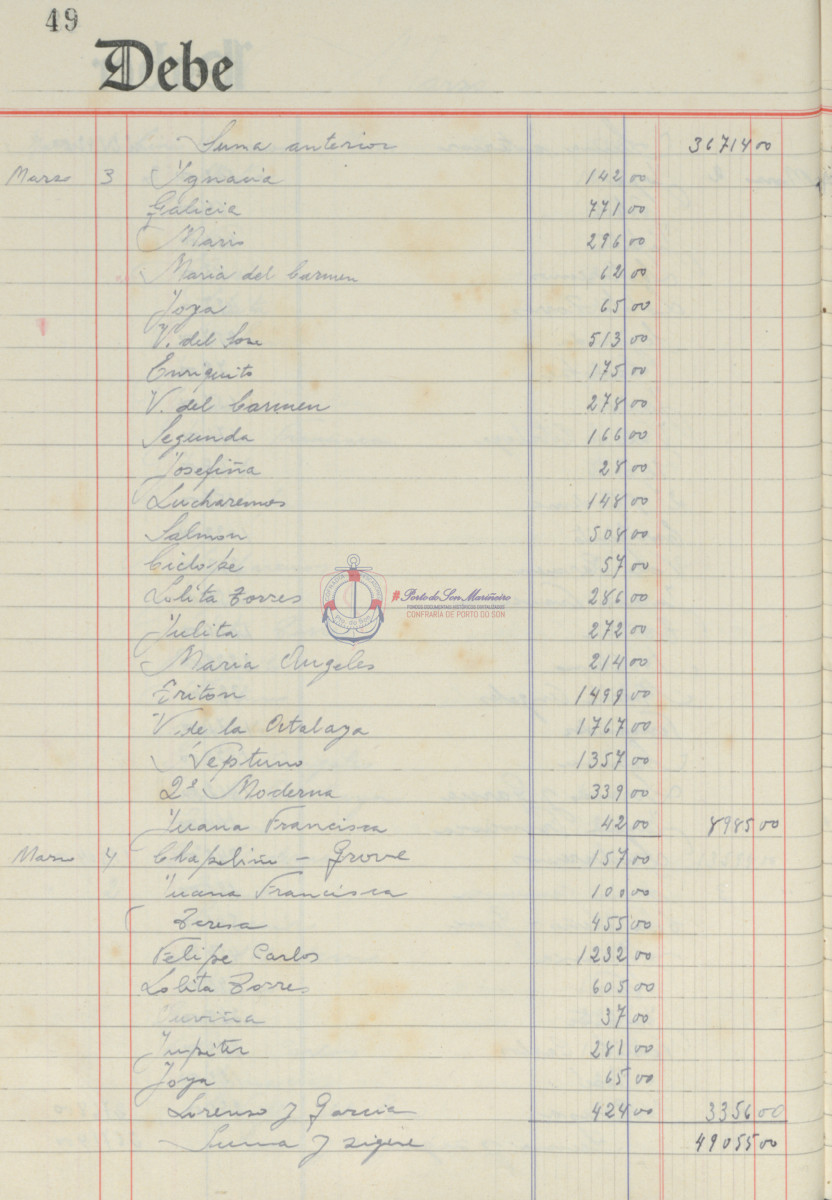 49
Debe
Suma anterior 36714 00
Marzo 3 Ignacia 142 00
Galicia 771 00
Maris 296 00
Maria del Carmen 62 00
Joya 65 00
V. del Jose 513 00
Enriquito 175 00
V. del Carmen 278 00
Segunda 166 00
Josefiña 28 00
Lucharemos 148 00
Salmon 508 00
Ciclope 57 00
Lolita Torres 286 00
Julita 272 00
Maria Angeles 214 00
Triton 1499 00
V. de la Atalaya 1767 00
Neptuno 1357 00
2ª Moderna 339 00
Juana Francisca 42 00 8985 00
Marzo 4 Chapeliño - Grove 157 00
Juana Francisca 100 00
Teresa 455 00
Felipe Carlos 1232 00
Lolita Torres 605 00
37 00
Jupiter 281 00
Joya 65 00
Lorenzo y Garcia 424 00 3356 00
Suma y sigue 49055 00
#PortodoSonMariñeiro
FONDOS DOCUMENTAIS HISTÓRICOS DIXITALIZADOS
CONFRARÍA DE PORTO DO SON